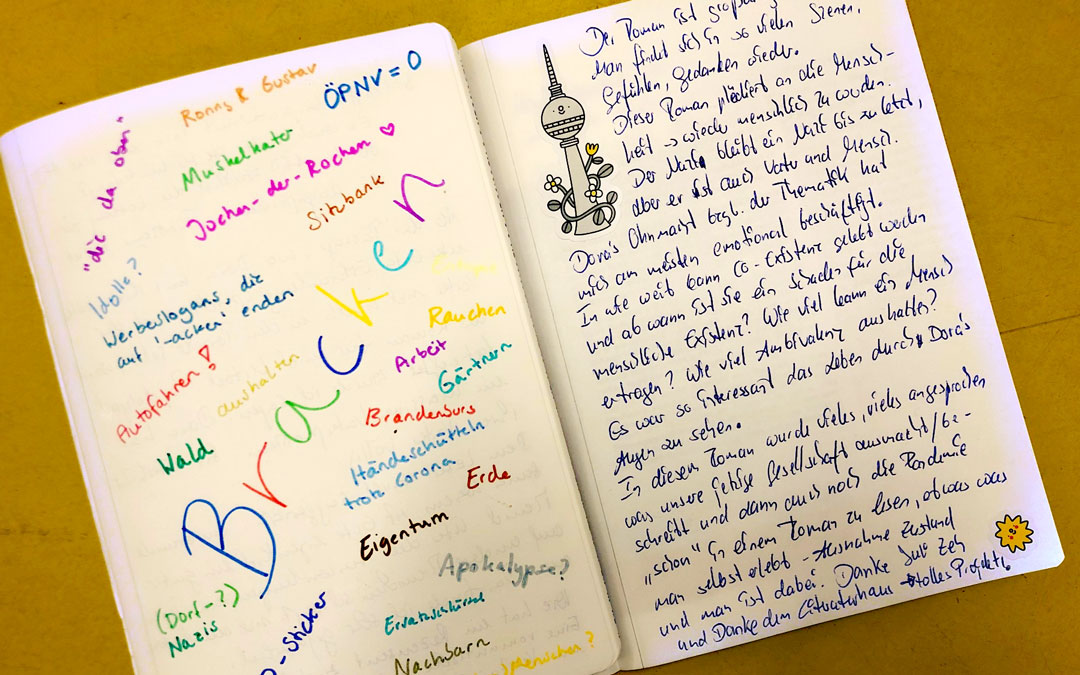 Ronny & Gustav
ÖPNV = 0
"die da oben"
Muskelkater
Jochen-der-Rochen
Sitzbank
Idolle?
Werbeslogans, die
auf '-acken' enden
Rauchen
Autofahren!
aushalten
Arbeit
Gärtnern
Wald
Bracken
Brandenburg
Händeschütteln
trotz Corona
Erde
Eigentum
Apokalypse?
(Dorf-?)
Nazis
-Sticker
Nachbarn
Menschen?
Der Roman ist
Man findet sich in so vielen Szenen,
Gefühlen, Gedanken wieder.
Dieser Roman plädiert an die Mensch-
heit → wieder menschlich zu werden.
Der Nazi bleibt ein Nazi bis zuletzt,
aber er ist auch Vater und Mensch.
Dora's Ohnmacht bzgl. der Thematik hat
mich am meisten emotional beschäftigt.
In wie weit kann Co-Existenz gelebt werden
und ab wann ist sie ein Schaden für die
menschliche Existenz? Wie viel kann ein Mensch
ertragen? Wie viel Ambivalenz aushalten?
Es war so interessant das Leben durch Dora's
Augen zu sehen.
In diesem Roman wurde vieles, vieles angesprochen
was unsere Gesellschaft ausmacht/be-
schreibt und dann auch noch die Pandemie
„schon" in einem Roman zu lesen, etwas was
man selbst erlebt - Ausnahme Zustand
und man ist dabei. Danke Juli Zeh
und Danke dem Literaturhaus tolles Projekt.